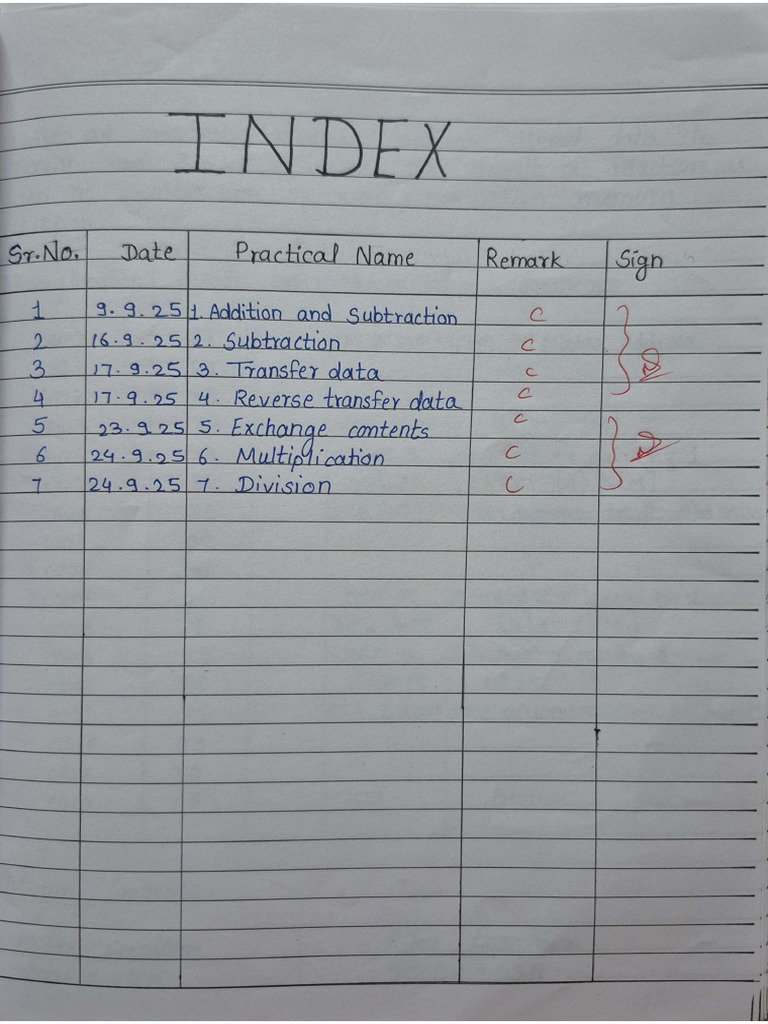 INDEX
Sr.No. Date Practical Name Remark Sign
1 9.9.25 1. Addition and Subtraction C
2 16.9.25 2. Subtraction C
3 17.9.25 3. Transfer data C
4 17.9.25 4. Reverse transfer data C
5 23.9.25 5. Exchange contents C
6 24.9.25 6. Multiplication C
7 24.9.25 7. Division C